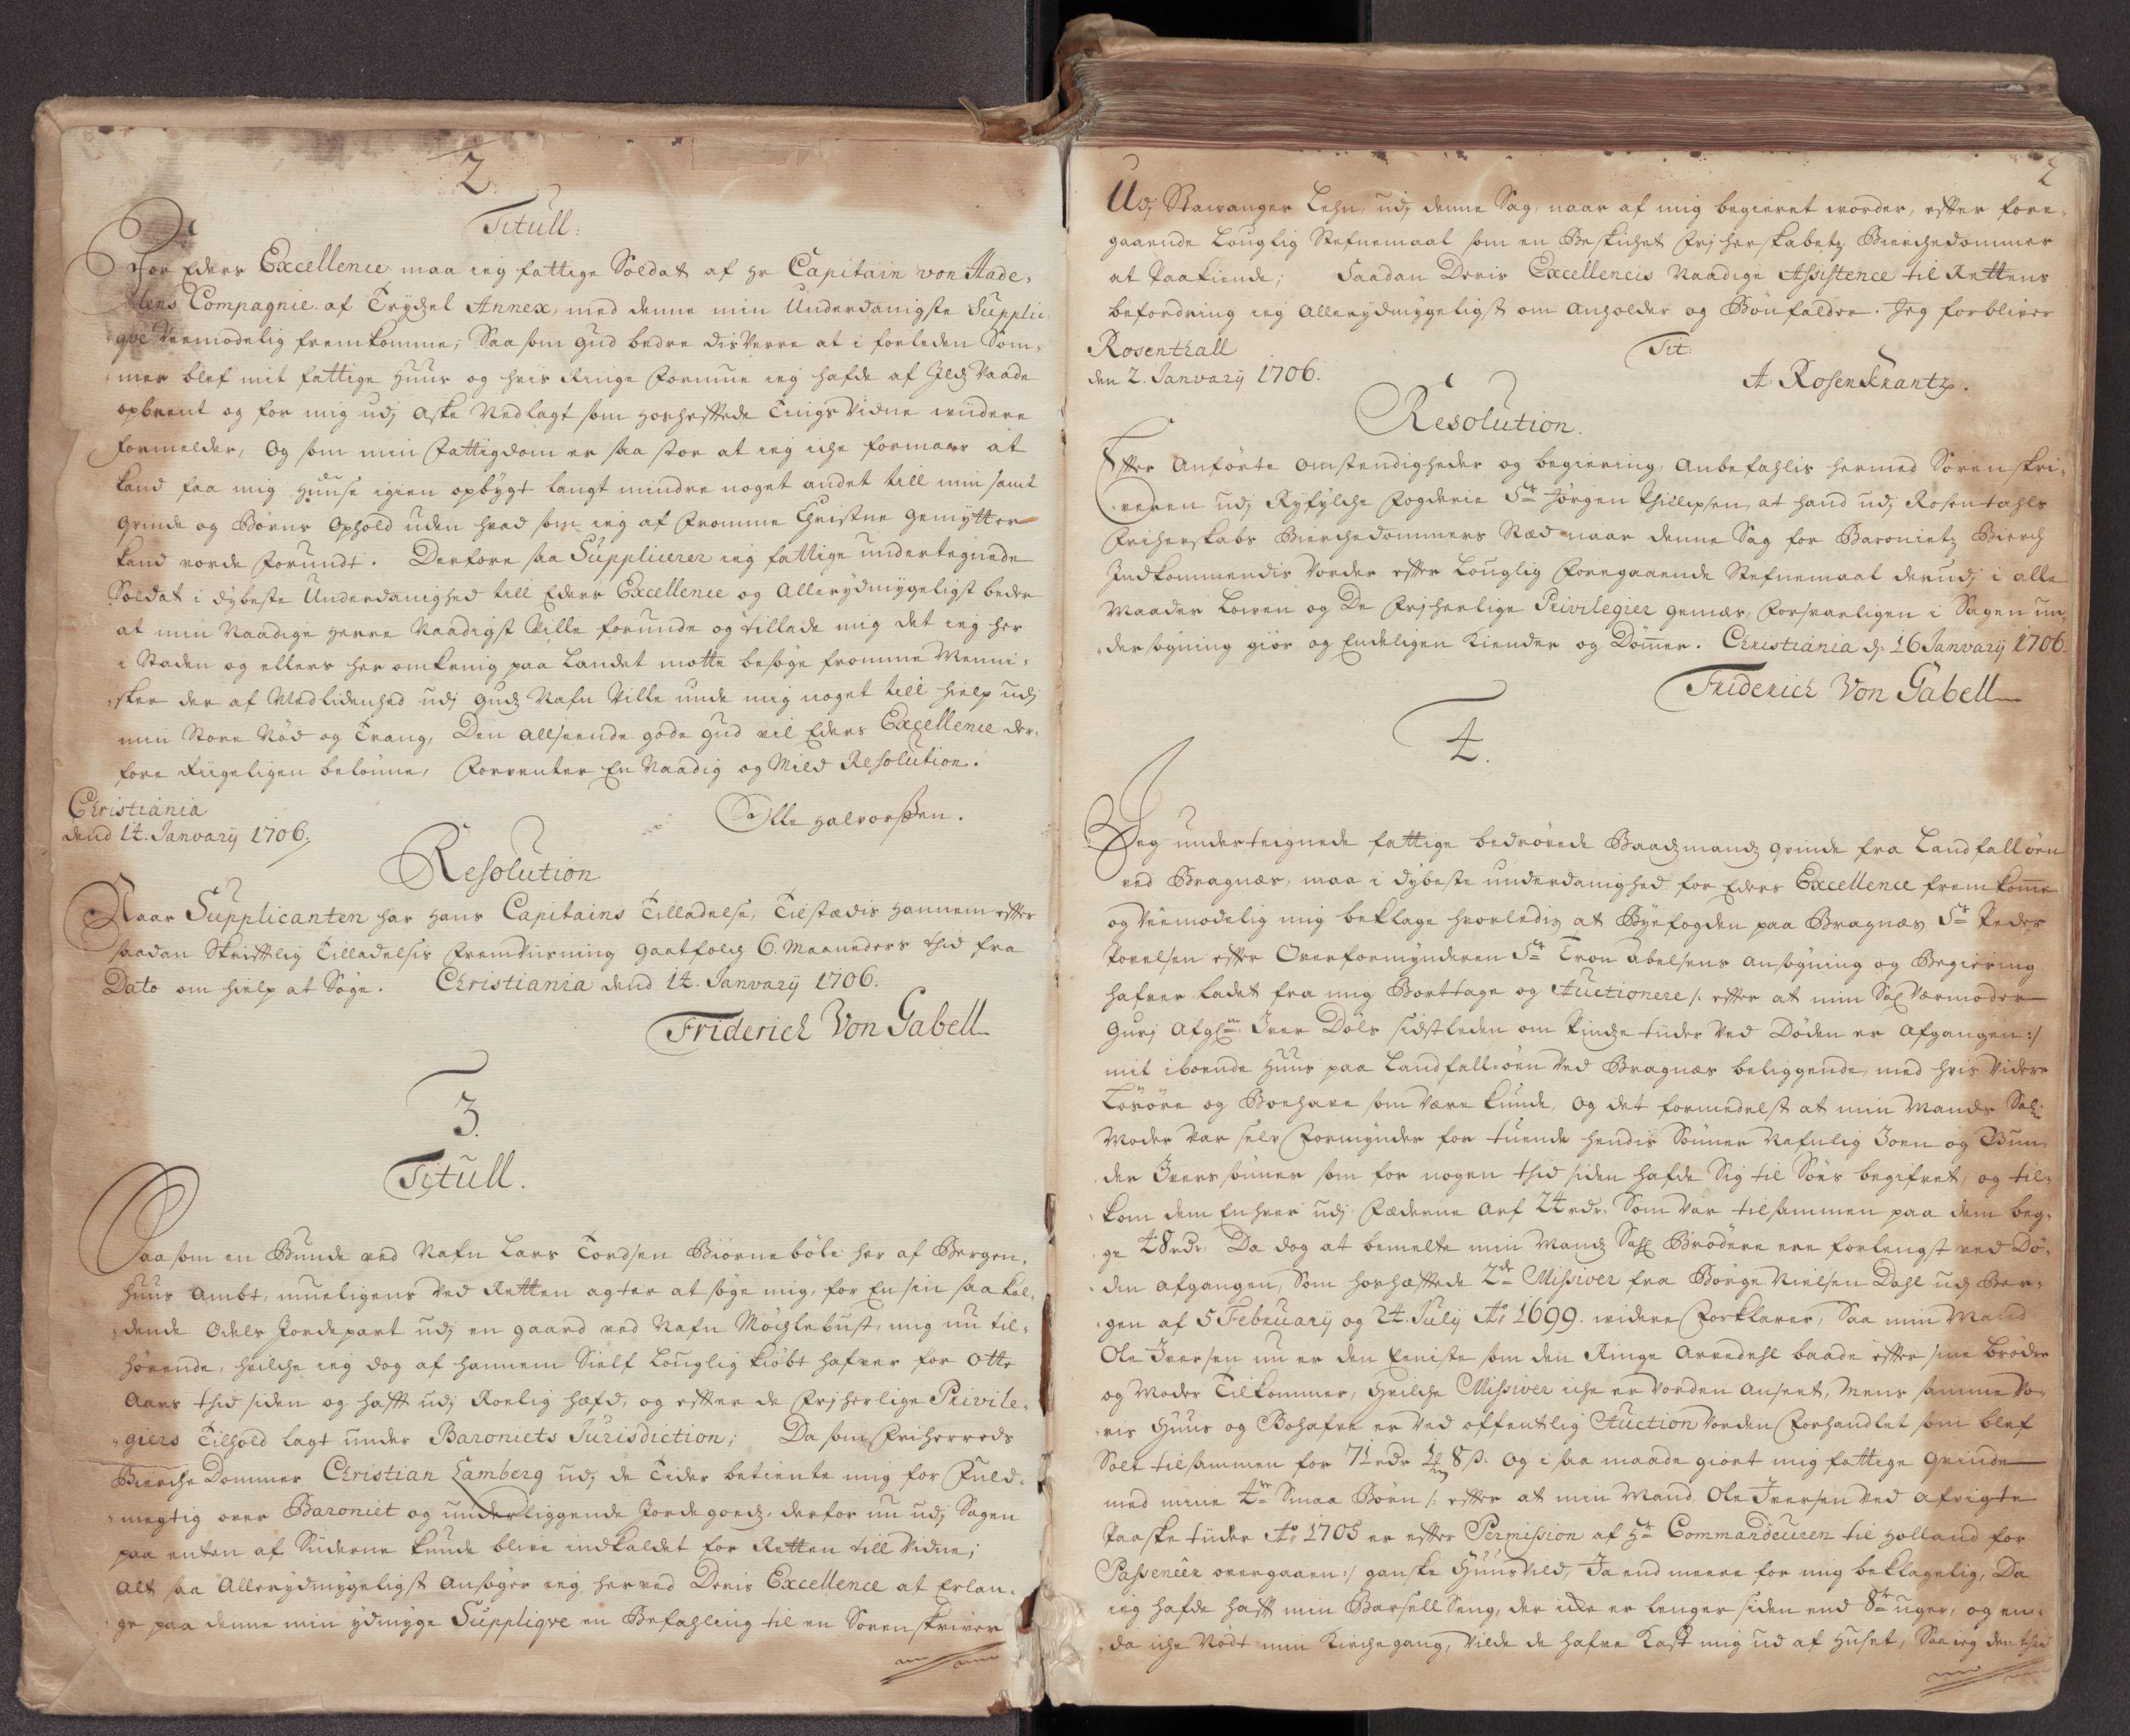 2.
Titull:
For Eders Excellence maa ieg fattige Soldat af Hr Capitain von Hade,
lens Compagnie af Trydzel Annex, med denne min Underdanigste Suppli
qve Veemodelig fremkomme, Saa som Gud bedre dis Verre at i forleden Som,
mer blef mit fattige Huus og hvis Ringe Formue ieg hafde af Ildz Vaade
opbrent og for mig udj Aske Nedlagt som hoshefftede Tings Vidne widere
formelder, Og som min Fattigdom er saa stor at ieg iche formaar at
kand faa mig Huuse igien opbygt langt mindre noget andet till min samt
Qvinde og Børns Ophold uden hvad som ieg af Fromme Christne Gemytter
kand vorde Forundt. Derfore saa Supplicerer ieg fattige undertegnede
Soldat i dybeste Underdanighed till Eders Excellence og Allerydmygeligst beder
at min Naadige Herre Naadigst Ville forunde og tillade mig det ieg her
i Staden og ellers her omkring paa Landet motte besøge fromme Menni,
sker der af Medlidenhed udj Gudz Nafn Ville unde mig noget till hielp udj
min Store Nød og Trang, Den allseende gode Gud vil Eders Excellence der,
fore Riigeligen belønne, Forventer En Naadig og Mild Resolution.
Christiania
dend 14. Janvary 1706.
Olle Halvorssen.
Resolution
Naar Supplicanten har Hans Capitains Tilladelse, Tilstædis Hannem effter
saadan Skrifftlig Tilladelsis Fremviisning Gaatfolch 6. Maaneders tid fra
Dato om hielp at Søge. Christiania dend 14. Janvary 1706.
Friderich Von Gabell
3.
Titull.
Saa som en Bunde ved Nafn Lars Tordsen Biørnebøle her af Bergen,
huus Ambt, mueligens Ved Retten agter at søge mig, for En sin saa kal,
dende Odels Jordepart udj en gaard ved Nafn Mochlebust, mig nu til,
hørende, hvilche ieg dog af hannem Sielf Louglig kiøbt hafver for Otte
Aars tid siden og hafft udj Roelig hæfd, og effter de Frjherlige Privile,
giers Tilhold lagt under Baroniets Jurisdiction; Da som Friherreds
Bierche Dommer Christian Lamberg udj de Tider betiente mig for Fuld,
megtig over Baroniet og underliggende Jordegodz, derfor nu udj Sagen
paa enten af Siiderne kunde blive indkaldet for Retten till Vidne;
Alt saa Allerydmygeligst Ansøger ieg herved Deris Excellence at Erlan,
ge paa denne min ydmyge Suppliqve en Befahling til en Sorenskriver
2
Udj Stawanger Lehn, udj denne Sag, naar af mig begieret worder, effter fore,
gaaende Louglig Stefnemaal som en Beskichet Frjherskabetz Bierchedommer
at Paakiende; Saadan Deris Excellencis Naadige Assistence til Rettens
befordring ieg Allerydmygeligst om Anholder og Bønfalder. Jeg forbliver
Rosenthall
den 2. Janvary 1706.
Tit:
A: Rosenkrantz.
Resolution.
Effter Anførte omstendigheder og begiering, Anbefahlis hermed Sorenskri,
veren udj Ryfylche Fogderie Sr Jørgen Phillipsen, at hand udj Rosentahls
Friherskabs Bierchedommers Stæd naar denne Sag for Baronietz Bierch
Indkommendis Vorder effter Louglig Foregaaende Stefnemaal derudj i alle
Maader Lowen og De Frjherlige Privilegier gemæs, Forsvarligen i Sagen un,
dersøgning giør og Endeligen Kiender og Dømer. Christiania d: 16 Janvary 1706.
Friderich Von Gabell
4.
Jeg underteignede fattige bedrøvede Baadzmandz Qvinde fra Landfalløen
ved Bragnæs, maa i dybeste underdanighed for Eders Excellence fremkome
og Veemodelig mig beklage hvorledis at Byefogden paa Bragnæs Sr Peder
Povelsen effter Overformynderen Sr Tron Abelsens ansøgning og Begiering
hafver ladet fra mig Borttage og Auctionere /: effter at min Sal Værmoder
Gurj Afgl: Iver Døls sidstleden om Pindze tiider Ved Døden er Afgangen :/
mit iboende Huus paa Landfalløen Ved Bragnæs beliggende, med hvis Videre
Løsøre og Boehave som Være kunde, og det formedelst at min Mands Sal:
Moder Var selv Formynder for tuende hendis Sønner Nafnlig Joen og Gun
der Ivers sønner som for nogen thid siden hafde Sig til Søes begifvet, og til,
kom dem Enhver udj Fæderne Arf 24 rdr. Som Var tilsammen paa dem beg,
ge 48 rdr. Da dog at bemelte min Mandz Sahl Brødere ere forlengst ved Dø,
den afgangen, Som hoshæfftede 2de Missiver fra Børge Nielsen Dahl udj Ber,
gen af 5 February og 24. July Ao 1699. widere Forklarer, Saa min Mand
Ole Iversen nu er den Eeniste som den Ringe Arvedehl baade effter sine brødre
og Moder Tilkommer, Hvilche Missiver iche er Vorden Anseet, Mens samme Vo,
ris Huus og Bohafve er Ved offentlig Auction Vorden Forhandlet som blef
Solt tilsammen for 71 rdr 1 8 s. Og i saa maade giort mig fattige Qvinde
med mine 4re Smaa Børn /: effter at min Mand Ole Iversen Ved afvigte
Paaske tiider Ao 1705 er effter Permission af Hr Commandeuren til Holland for
Passeneer overgaaen :/ ganske Huusvild, Ja end meere for mig beklagelig, Da
ieg hafde hafft min Barsell Seng, der iche er lenger siden end 8te uger, og en,
da iche Nødt min Kirchegang, Vilde de hafve Kast mig ud af Huset, Saa ieg den thid